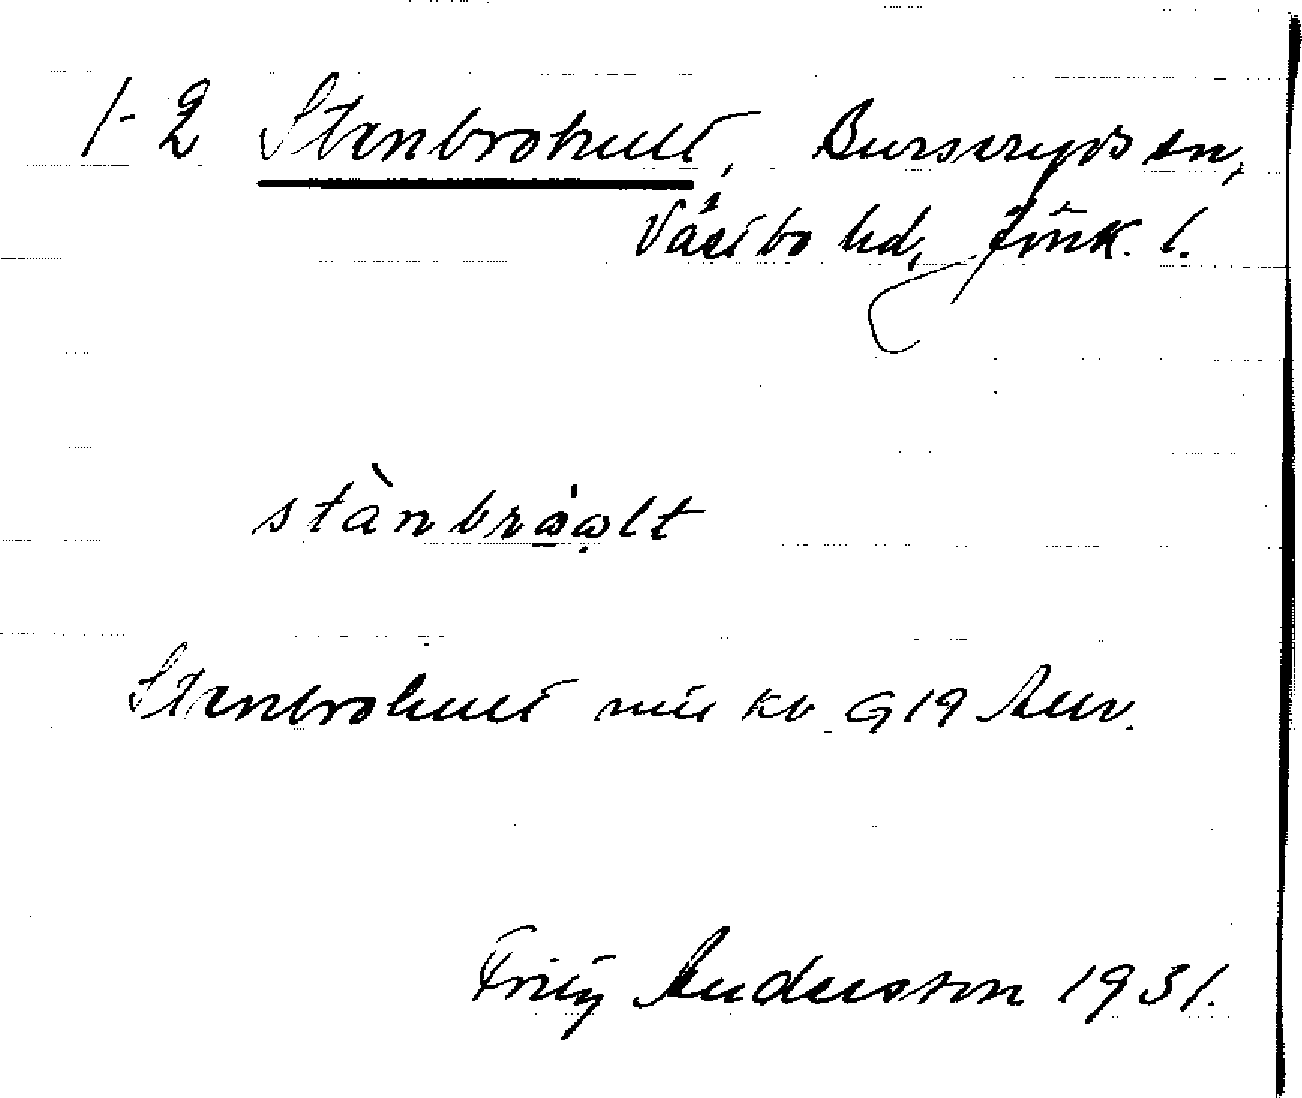 1-2 Stenbrohult, Burseryds sn,
Västbo hd, Jönk. l.
stànbråålt
Stenbrohult Aur.
Fritz Andersson 1931.